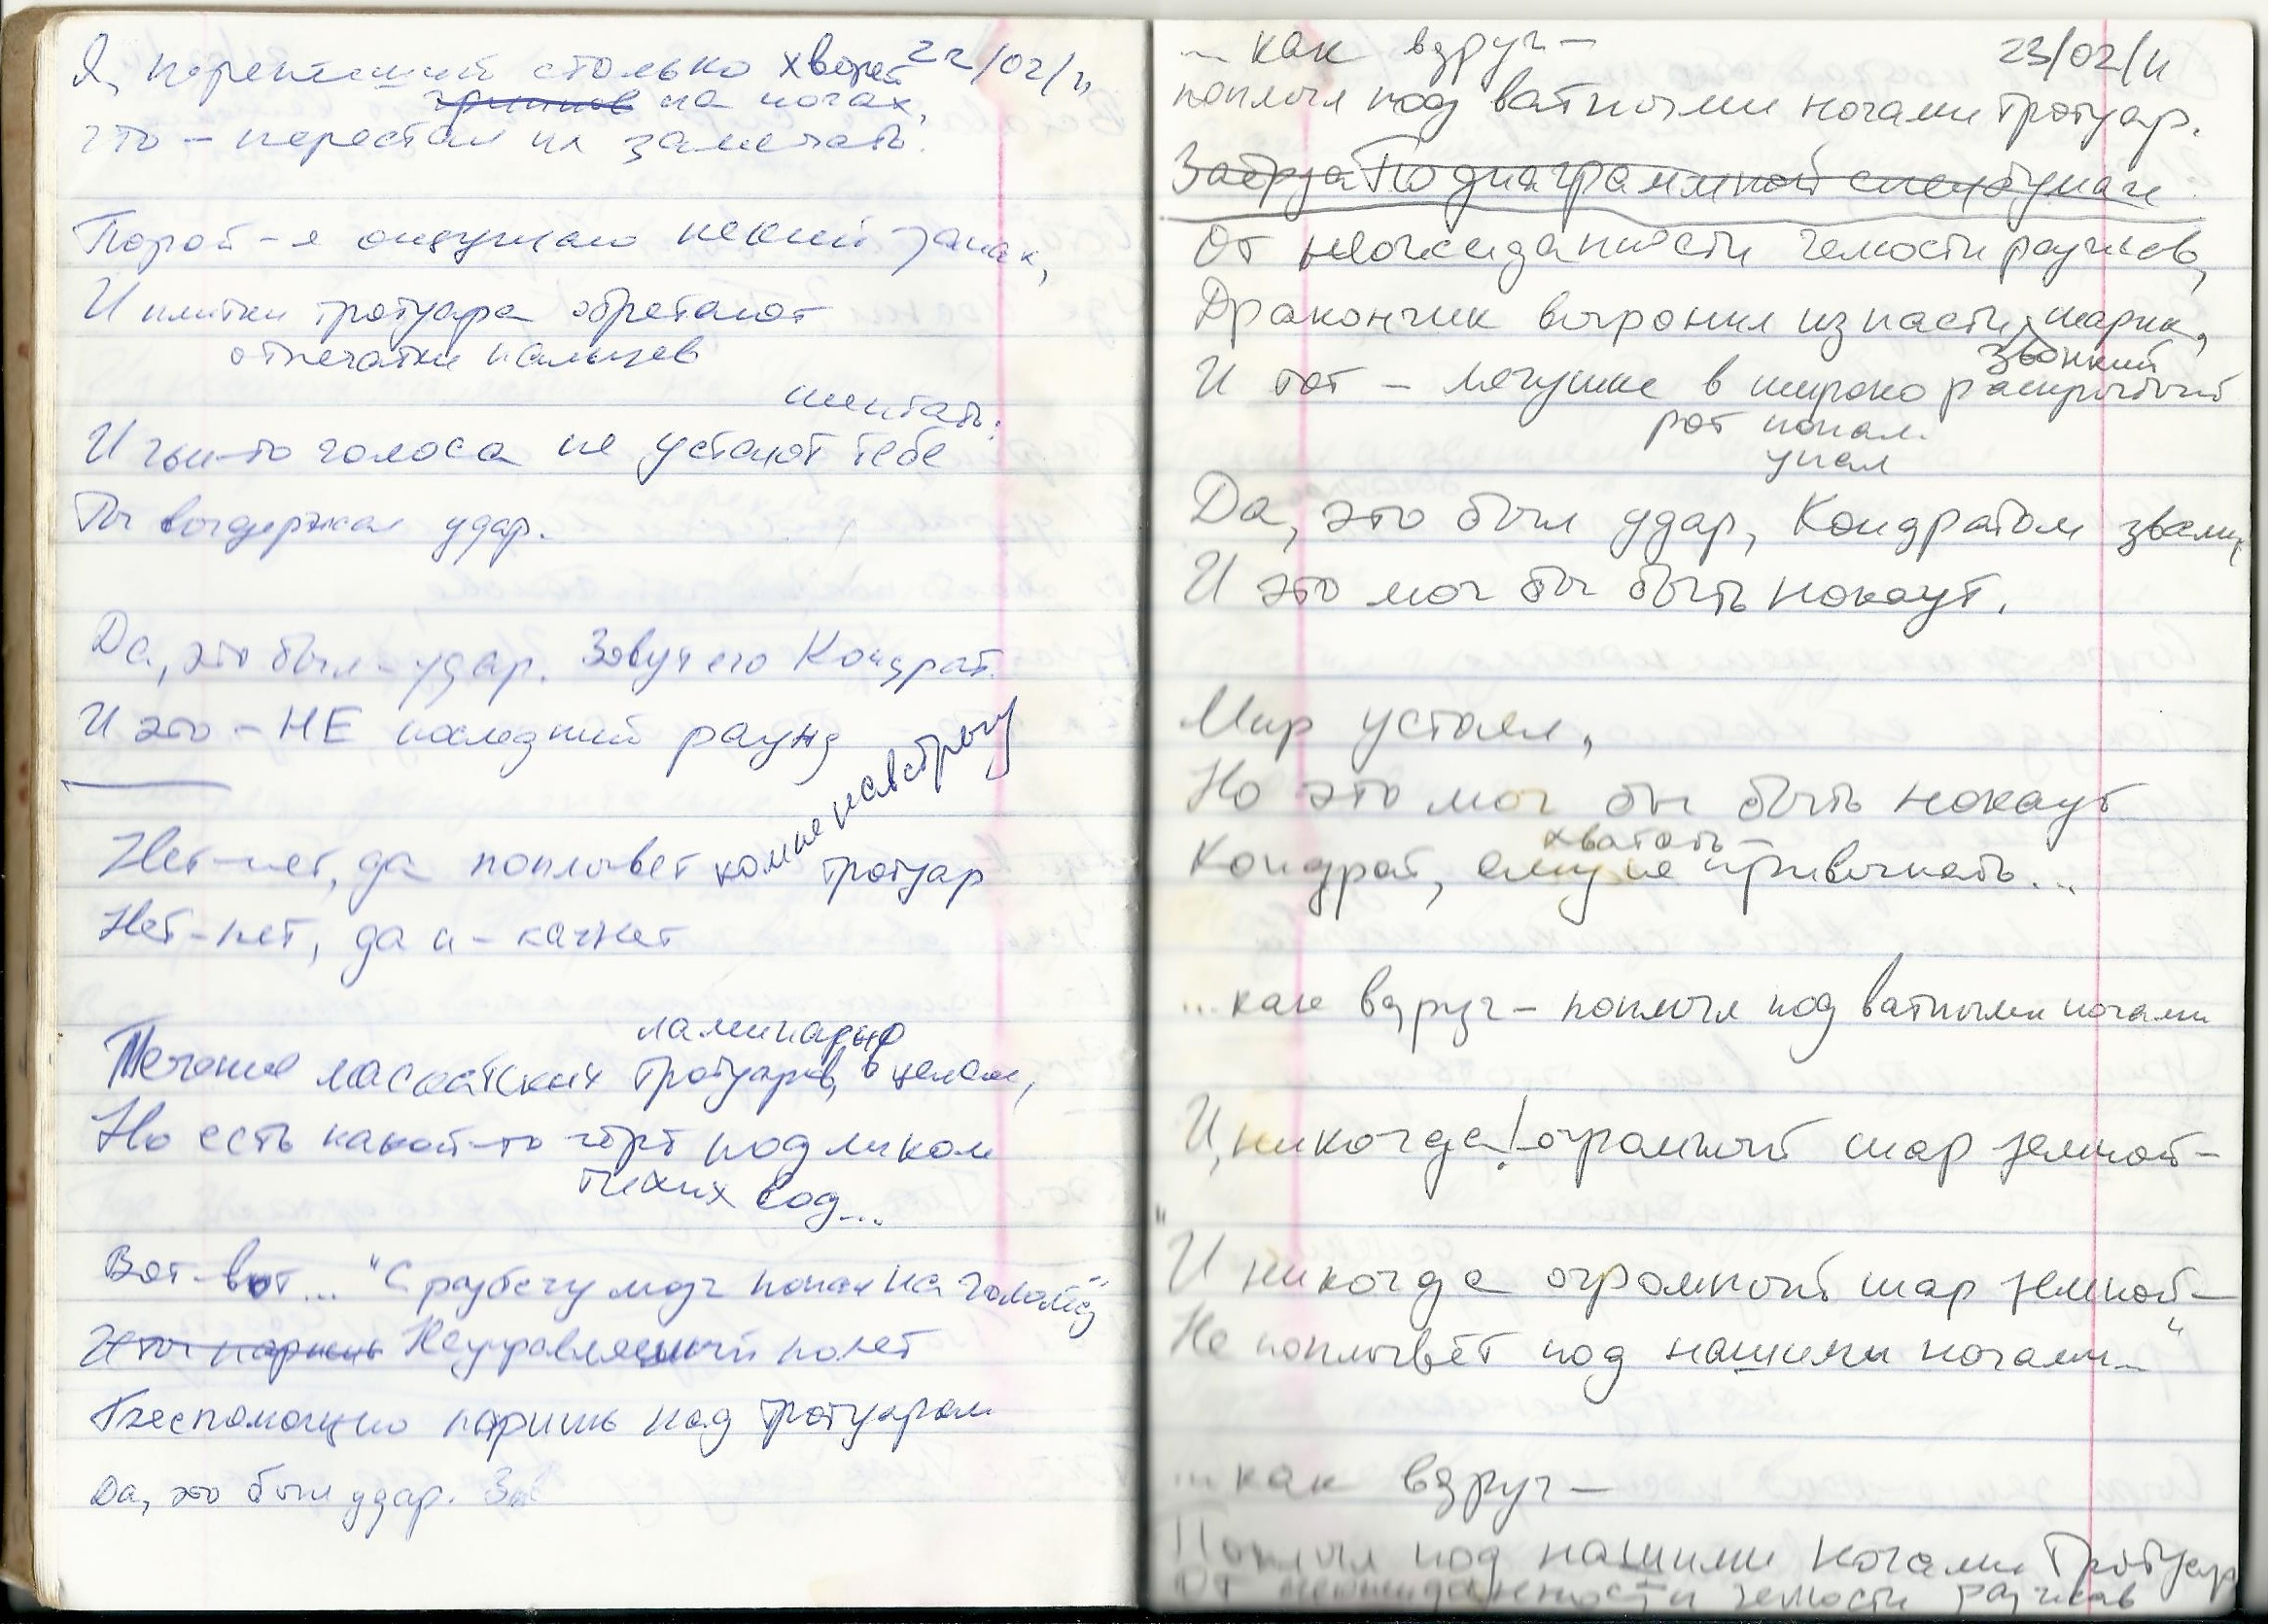 Я, перенесший столько хворей 22/02/11
гриппов на ногах,
что – перестал их замечать.
Порой – я ощущаю некий запах,
И плитки тротуара обретают
отпечатки пальцев
шептать:
И чьи-то голоса не устают тебе
Ты выдержал удар.
Да, это был – удар. Зовут его Кондрат.
И это – НЕ последний раунд
Нет-нет, да поплывет ко мне навстречу
тротуар
Нет-нет, да и – качнет
ламинарно
Течение масматских тротуаров, в целом,
Но есть какой-то чёрт под ликом
тихих вод...
Вот-вот... "С разбегу мозг попал на гололёд"
Неуправляемый полет
Беспомощно паришь над тротуаром
Да, это был удар. Зов
... как вдруг – 23/02/11
поплыл под ватными ногами тротуар.
Забруа По диаграммной спецбумаге
От неожиданности челюсти разжав,
Дракончик выронил из пасти шарик,
звонкий
И тот – лягушке в широко раскрытый
рот попал.
упал
Да, это был удар, Кондратом звали,
И это мог бы быть нокаут.
Мир устоял,
Но это мог бы быть нокаут
хватать
Кондрат, ему не привыкать...
... как вдруг – поплыл под ватными ногами
И, никогда! огромный шар земной –
"И никогда огромный шар земной –
Не поплывёт под нашими ногами..."
... как вдруг –
Поплыл под нашими ногами тротуар
От неожиданности челюсти разжав